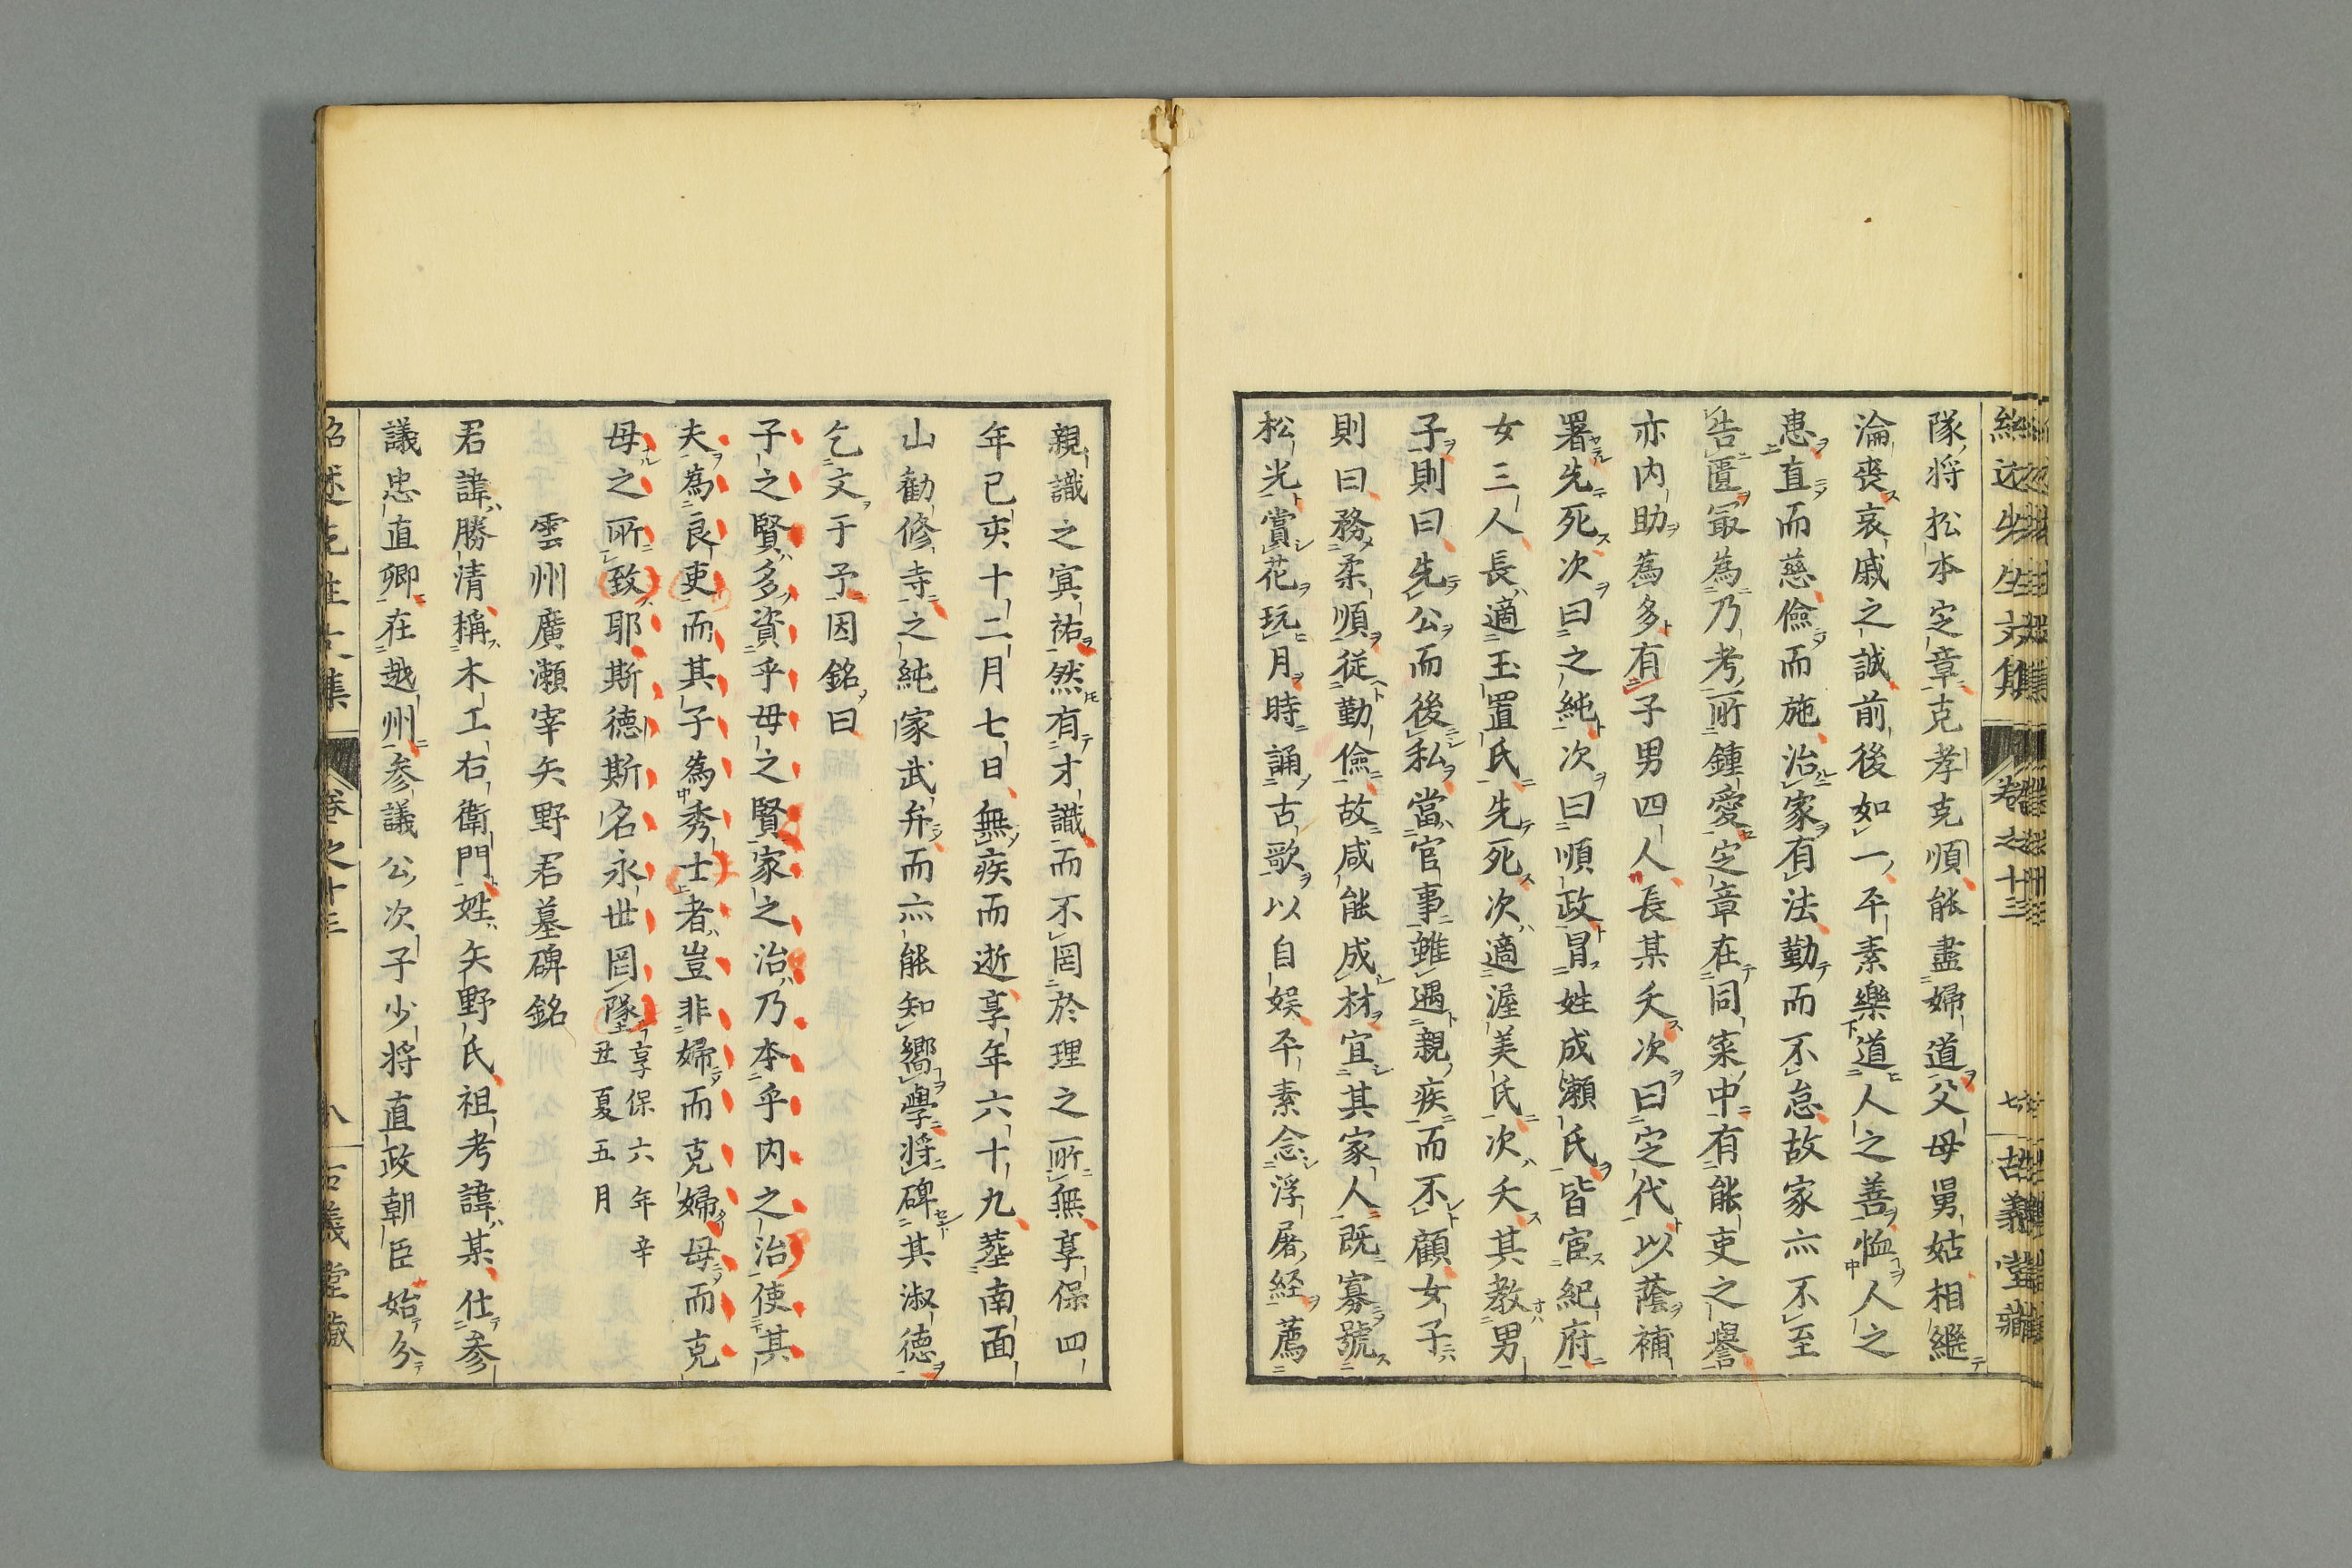 紹述先生文集 卷之十三 七 古義堂藏
隊将松本定章克孝克順能盡婦道父母舅姑相繼
淪喪哀戚之誠前後如一平素樂道人之善恤人之
患直而慈儉而施治家有法勤而不怠故家亦不至
告匱冣為乃考所鍾愛定章在同寀中有能吏之譽
亦内助為多有子男四人長某夭次曰定代以蔭補
署先死次曰之純次曰順政冒姓成瀬氏皆宦紀府
女三人長適玉置氏先死次適渥美氏次夭其教男
子則曰先公而後私當官事雖遇親疾而不顧女子
則曰務柔順従勤儉故咸能成材宜其家人既寡號
松光賞花玩月時誦古歌以自娯平素念浮屠経薦
親識之冥祐然有才識而不罔於理之所無享保四
年己亥十二月七日無疾而逝享年六十九葬南面
山勧修寺之純家武弁而亦能知嚮學将碑其淑德
乞文于予因銘曰
子之賢多資乎母之賢家之治乃本乎内之治使其
夫為良吏而其子為秀士者豈非婦而克婦母而克
母之所致耶斯德斯名永世罔墜享保六年辛
丑夏五月
雲州廣瀬宰矢野君墓碑銘
君諱勝清稱木工右衛門姓矢野氏祖考諱某仕参
議忠直卿在越州参議公次子少将直政朝臣始分
紹述先生文集 卷之十三 八 古義堂藏